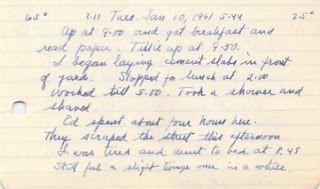 65° 7.11 Tues. Jan 10, 1961 5.44 25°
Up at 9:00 and got breakfast and
read paper. Tillie up at 9:50.
I began laying cement slabs in front
of yard. Stopped for lunch at 2:00
Worked till 5:00. Took a shower and
shaved.
Ed spent about four hours here.
They scraped the street this afternoon
I was tired and went to bed at 8:45
Still feel a slight twinge once in a while.